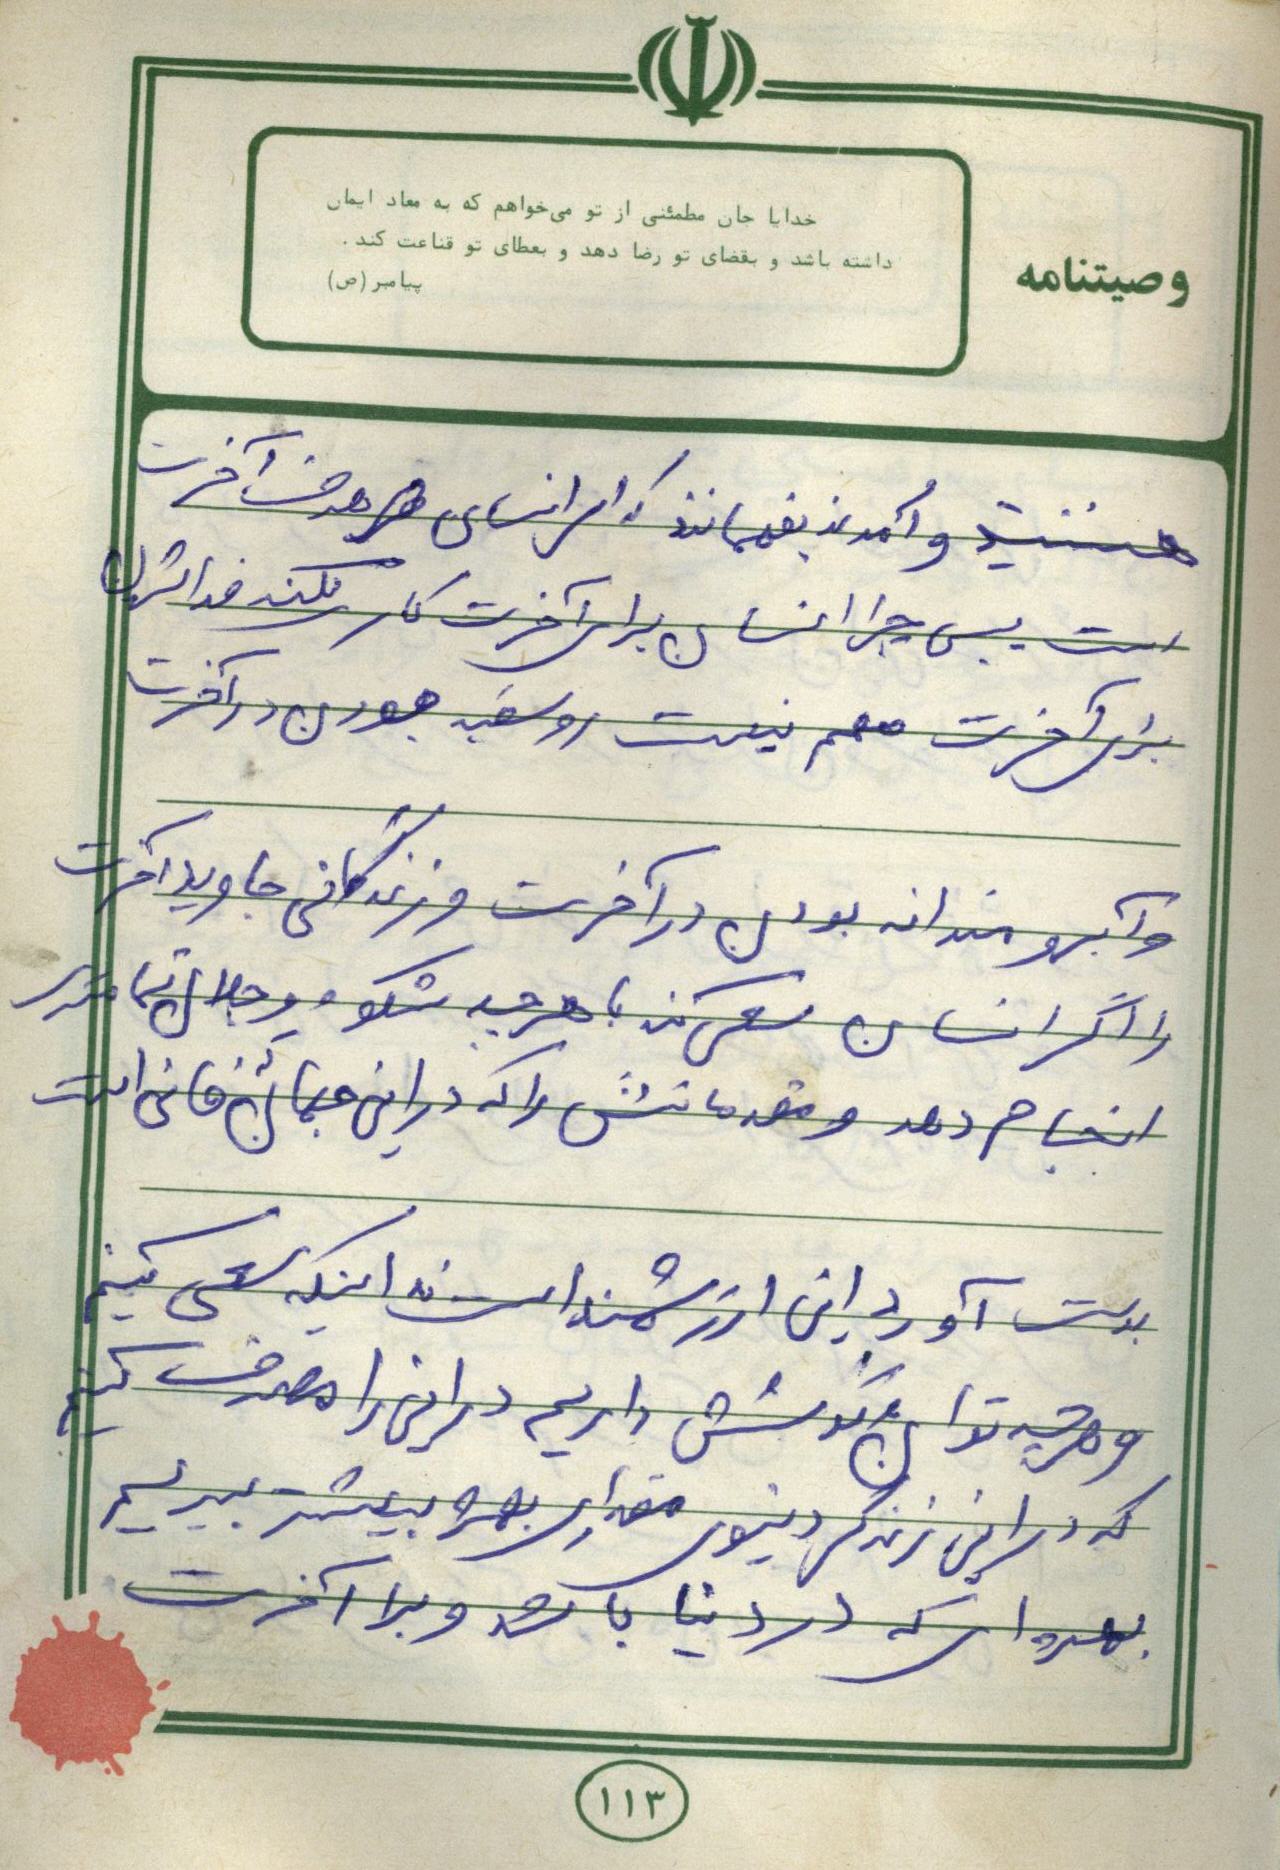 وصیتنامه
خدایا جان مطمئنی از تو می‌خواهم که به معاد ایمان
داشته باشد و بقضای تو رضا دهد و بعطای تو قناعت کند .
پیامبر (ص)
هستند و آمدند بفهمانند که انسان هدف آخرت
است پس چرا انسان برای آخرت کار نکند
برای آخرت مهم نیست بودن در آخرت
و آبرومندانه بودن در آخرت و زندگانی جاوید آخرت
را اگر انسان سعی کند با هر چه شکوه و جلال تمامتر
انجام دهد و مقدماتش را که در این جهان فانی است
بدست آورد این ارزشمند است نه اینکه سعی کنیم
و هر چه توان و کوشش داریم در این را مصرف کنیم
که در این زندگی دنیوی مقداری بهره بیشتر ببریم
بهره ای که در دنیا باشد و برا آخرت
۱۱۳